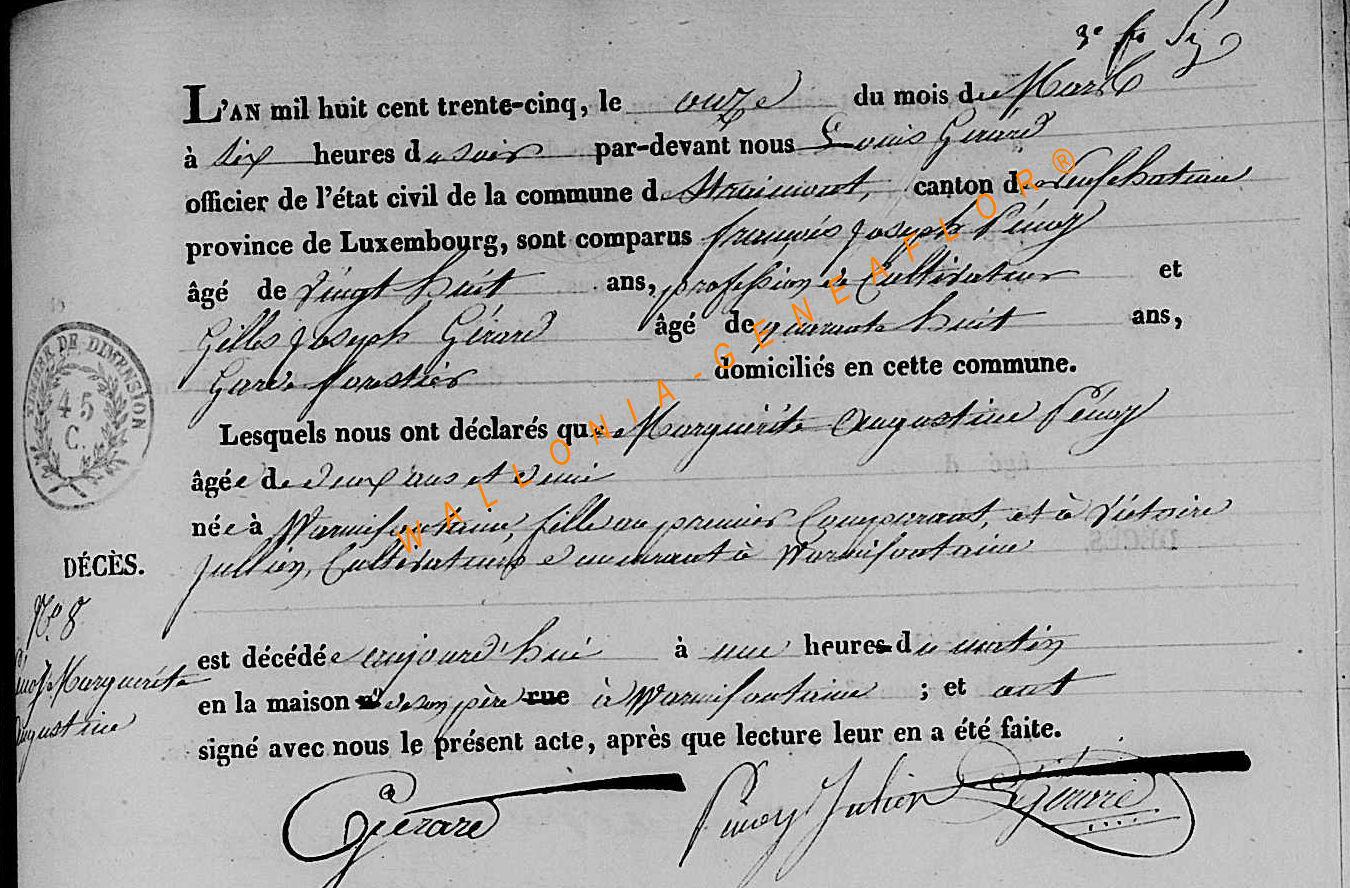 3e
L'AN mil huit cent trente-cinq, le onze du mois de Mars
à six heures du soir par-devant nous Louis Gerard
officier de l'état civil de la commune de Straimont, canton de neufchateau
province de Luxembourg, sont comparus françois Joseph Pénoy
âgé de vingt huit ans, profession de Cultivateur et
Gilles Joseph Gérard âgé de quarante huit ans,
Garde forestier domiciliés en cette commune.
Lesquels nous ont déclarés que Marguérite augustine Pénoy
âgée de deux ans et demi
née à Warmifontaine, fille au premier Comparant, et à Victoire
Jullien, Cultivateurs demeurant à Warmifontaine
DÉCÈS.
No 8
Pénoy Marguérite
Augustine
est décédée aujourd'hui à une heures du matin
en la maison no de son père rue à Warmifontaine ; et ont
signé avec nous le présent acte, après que lecture leur en a été faite.
Gerard
Penoy Julien
Gj Gerard
TIMBRE DE DIMENSION
45
C.
WALLONIA-GENEAFLOR®